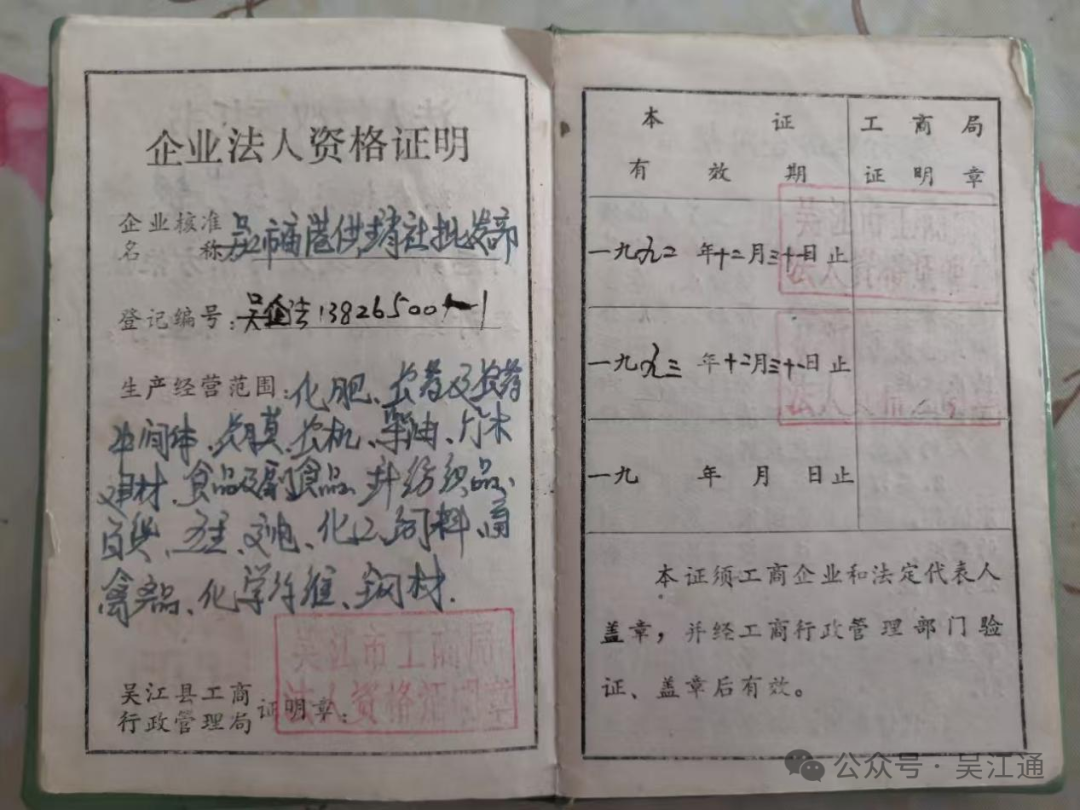 企业法人资格证明
企业核准
名称 吴江市庙港供销社批发部
登记编号：吴企法13826500-1
生产经营范围：化肥、农药及农药
中间体、农膜、农机、柴油、竹木
建材、食品及副食品、针纺织品、
百货、五金、交电、化工、饲料、
禽蛋品、化学纤维、钢材.
吴江县工商
行政管理局 证明章：
吴江市工商局
法人资格证明章
本证 工商局
有效期 证明章
一九九二年十二月三十一日止
吴江市工商局
法人资格证明章
一九九三年十二月三十一日止
法人资格
一九 年 月 日止
本证须工商企业和法定代表人
盖章，并经工商行政管理部门验
证、盖章后有效。
公众号·吴江通